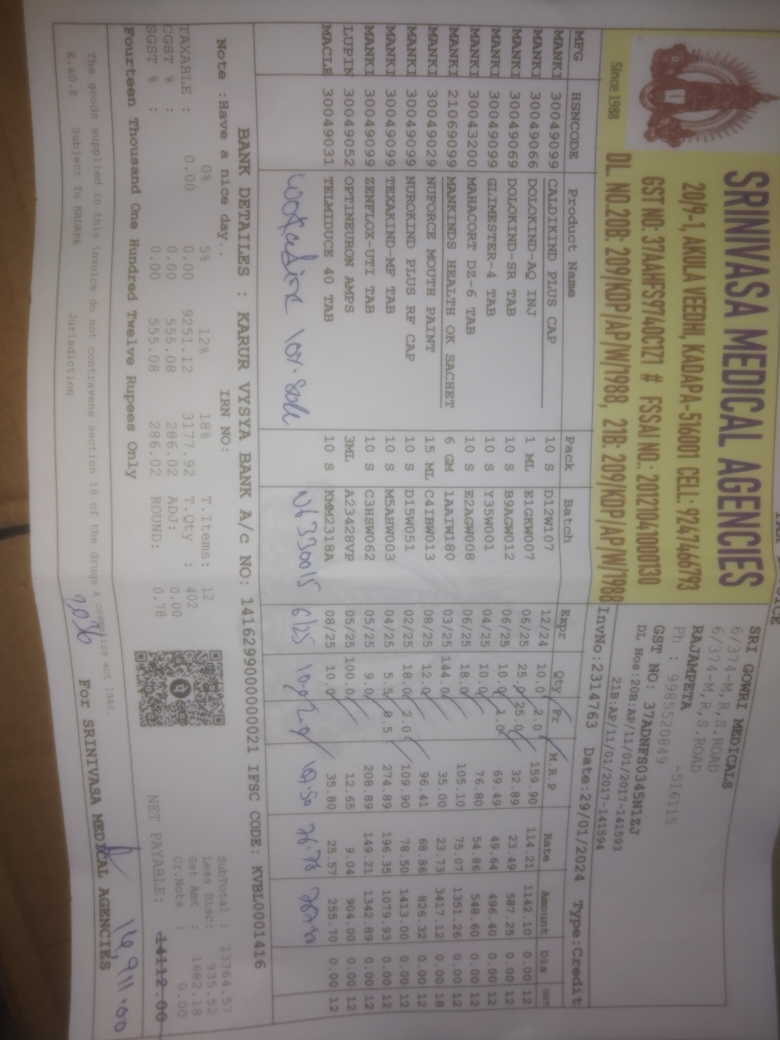 SRINIVASA MEDICAL AGENCIES
20/9-1, AKULA VEEDHI, KADAPA-516001 CELL: 9247466793
GST NO: 37AAHFS9740C1Z1 # FSSAI NO.: 20121041000130
DL. NO.20B: 209/KDP/AP/W/1988, 21B: 209/KDP/AP/W/1988
Since 1988
SRI GOWRI MEDICALS
6/374-M,R,S.ROAD
6/374-M,R,S.ROAD
RAJAMPETA -516115
Ph : 9985520849
GST NO: 37ADNFS0345N1ZJ
DL Nos:20B:AP/11/01/2017-141593
21B:AP/11/01/2017-141594
InvNo:2314763 Date:29/01/2024 Type:Credit
MFG HSNCODE Product Name Pack Batch Expr Qty Fr M.R.P Rate Amount Dis GST
MANKI 30049099 CALDIKIND PLUS CAP 10 S D12W107 12/24 10.0 2.0 159.90 114.21 1142.10 0.00 12
MANKI 30049066 DOLOKIND-AQ INJ 1 ML E1GKW007 06/25 25.0 25.0 32.89 23.49 587.25 0.00 12
MANKI 30049069 DOLOKIND-SR TAB 10 S B9AGW012 06/25 10.0 1.0 69.49 49.64 496.40 0.00 12
MANKI 30049099 GLIMESTER-4 TAB 10 S Y35W001 04/25 10.0 76.80 54.86 548.60 0.00 12
MANKI 30043200 MAHACORT DZ-6 TAB 10 S E2AGW008 06/25 18.0 105.10 75.07 1351.26 0.00 12
MANKI 21069099 MANKINDS HEALTH OK SACHET 6 GM 1AAIW180 03/25 144.0 35.00 23.73 3417.12 0.00 18
MANKI 30049029 NUFORCE MOUTH PAINT 15 ML C4IBW013 08/25 12.0 96.41 68.86 826.32 0.00 12
MANKI 30049099 NUROKIND PLUS RF CAP 10 S D15W051 02/25 18.0 2.0 109.90 78.50 1413.00 0.00 12
MANKI 30049099 TEXAKIND-MF TAB 10 S M5AHW003 04/25 5.5 0.5 274.89 196.35 1079.93 0.00 12
MANKI 30049099 ZENFLOX-UTI TAB 10 S C3HSW062 05/25 9.0 208.89 149.21 1342.89 0.00 12
LUPIN 30049052 OPTINEURON AMPS 3ML A23428VP 05/25 100.0 12.65 9.04 904.00 0.00 12
MACLE 30049031 TELMIDUCE 40 TAB 10 S KMM2318A 08/25 10.0 35.80 25.57 255.70 0.00 12
6/25
BANK DETAILES : KARUR VYSYA BANK A/c NO: 1416299000000021 IFSC CODE: KVBL0001416
Note :Have a nice day.. IRN NO:
0% 5% 12% 18% T.Items: 12
TAXABLE : 0.00 0.00 9251.12 3177.92 T.Qty : 402
CGST % : 0.00 0.00 555.08 286.02 ADJ: 0.00
SGST % : 0.00 555.08 286.02 ROUND: 0.78
SubTotal : 13364.57
Less Disc: 935.52
Gst Amt : 1682.18
Cr.Note : 0.00
Fourteen Thousand One Hundred Twelve Rupees Only NET PAYABLE: 14112.00
The goods supplied in this invoice do not contravene section 18 of the drugs & cosmetics act 1940.
E.&O.E Subject To KADAPA Jurisdiction
For SRINIVASA MEDICAL AGENCIES
14,911.00